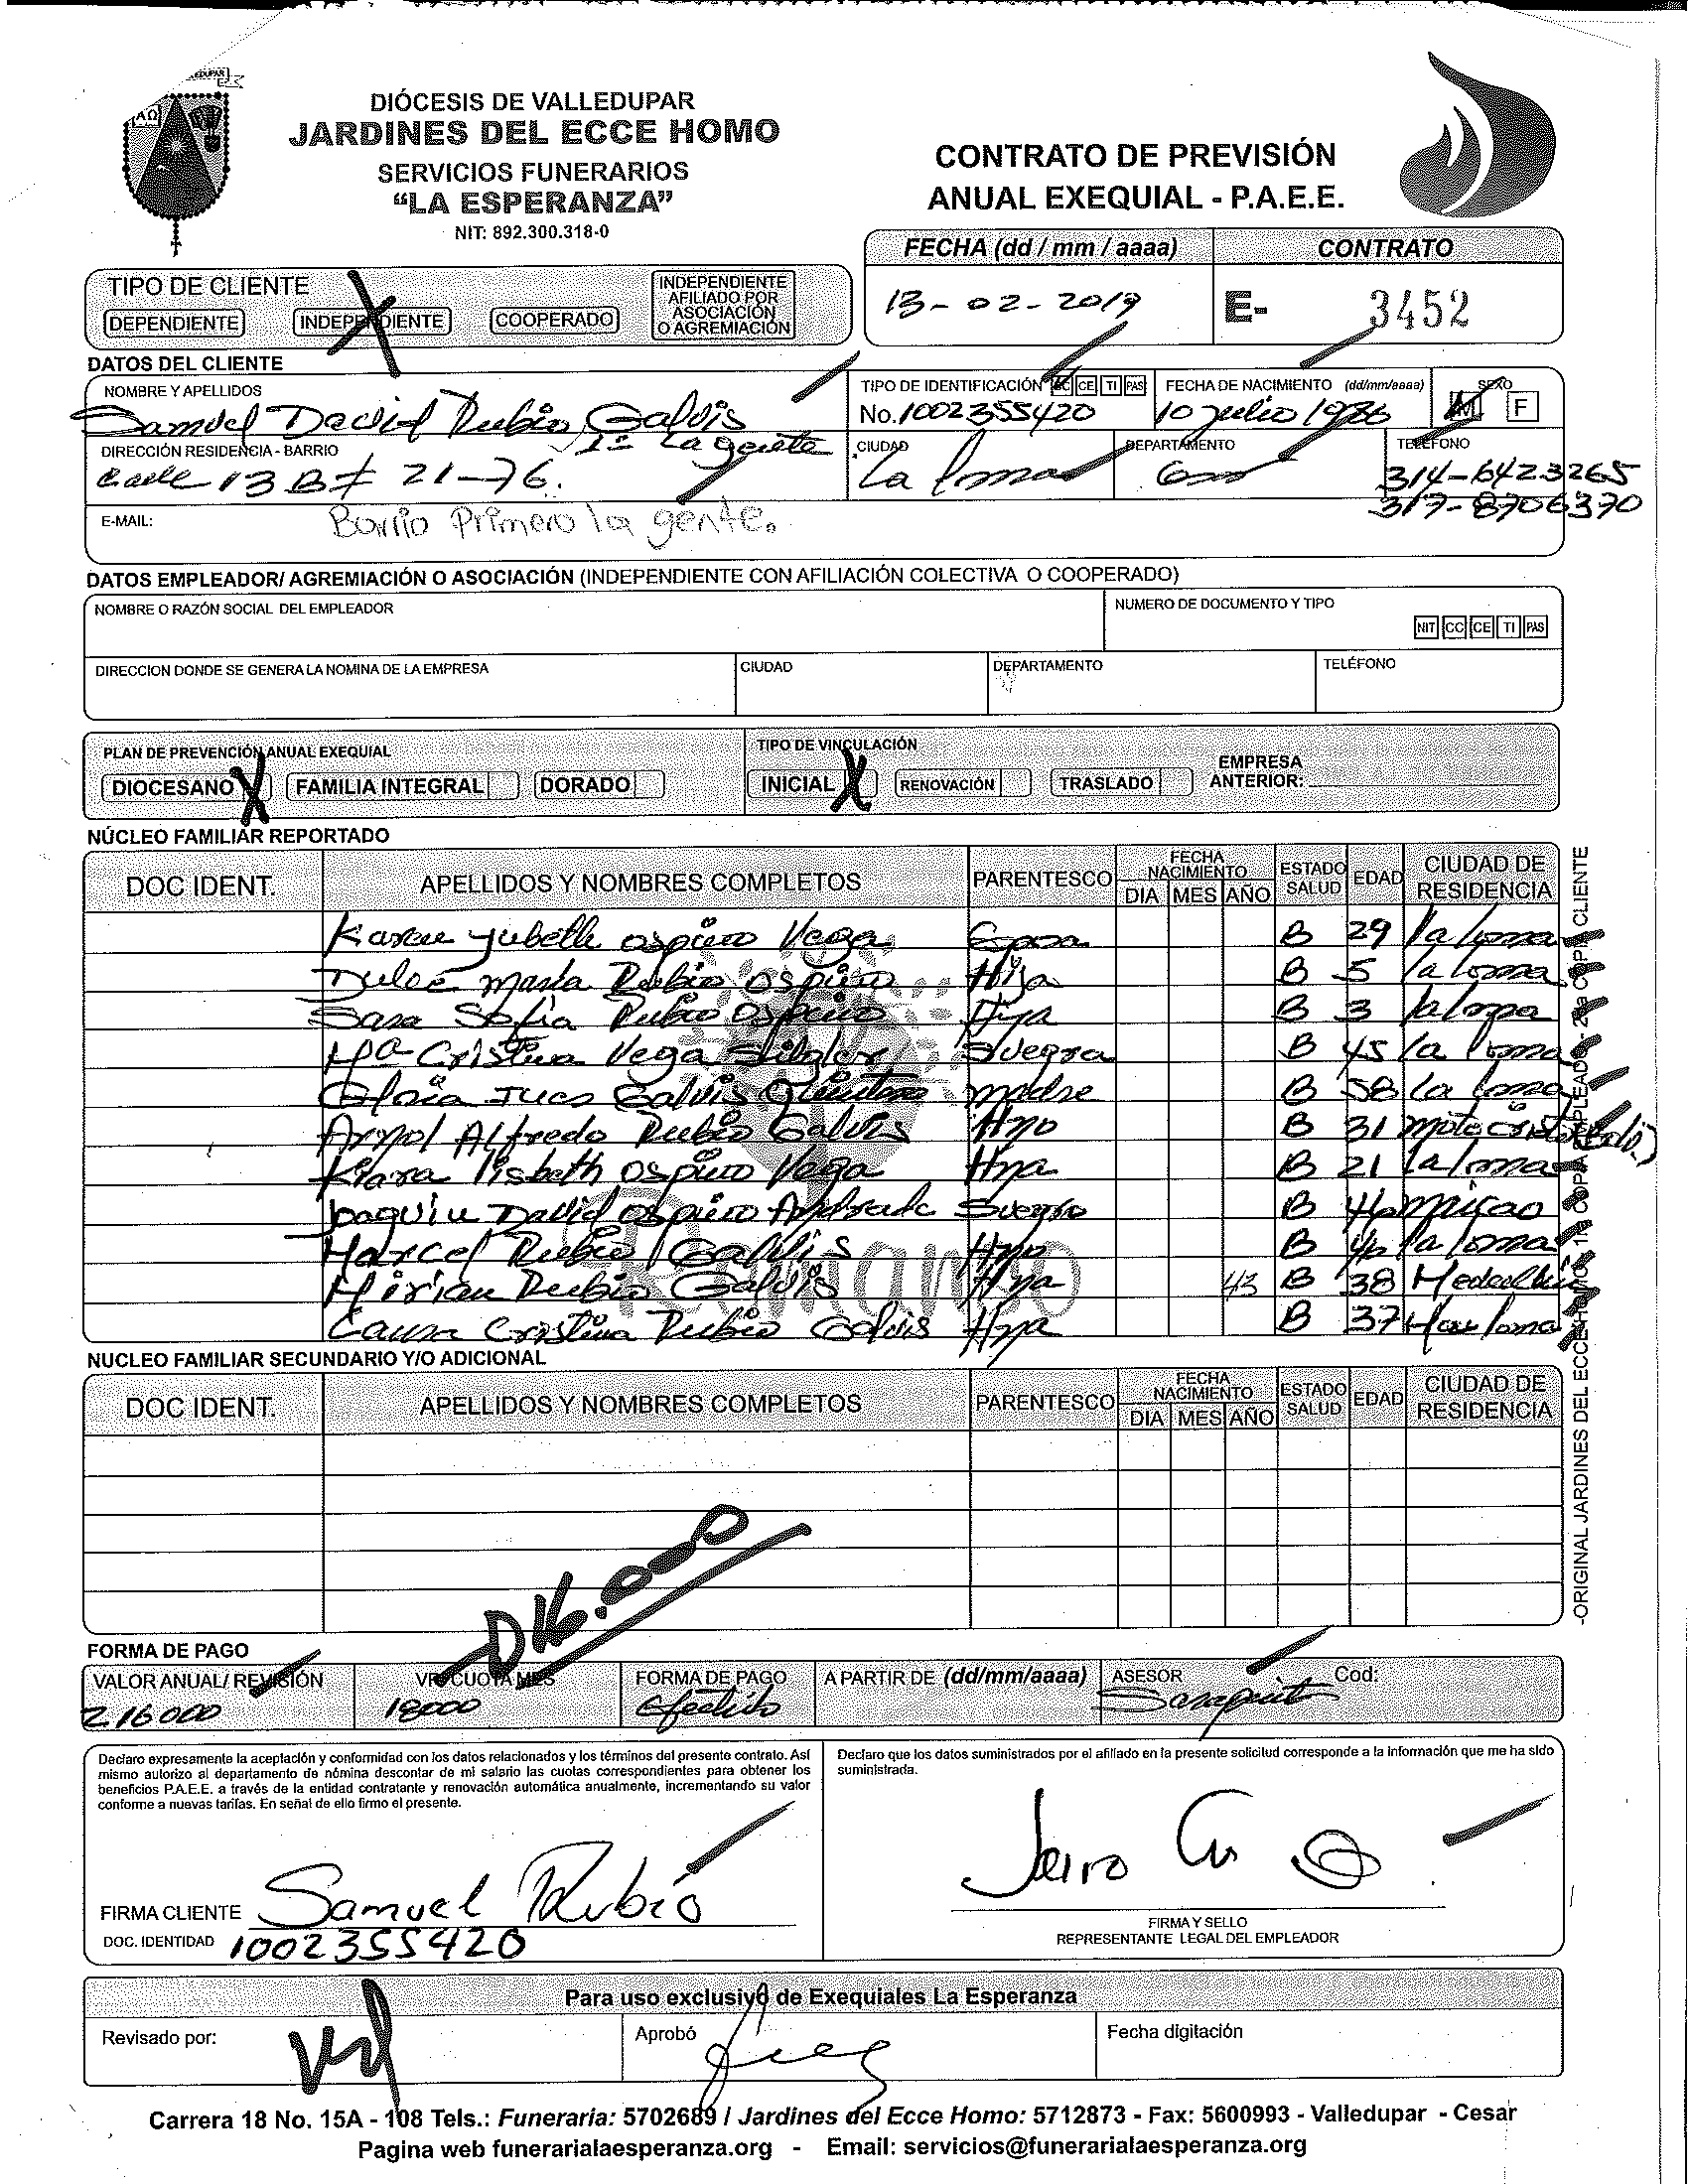 DIÓCESIS DE VALLEDUPAR
JARDINES DEL ECCE HOMO
SERVICIOS FUNERARIOS
“LA ESPERANZA”
NIT: 892.300.318-0
CONTRATO DE PREVISIÓN
ANUAL EXEQUIAL - P.A.E.E.
FECHA (dd / mm / aaaa) CONTRATO
13-02-2019 E- 3452
TIPO DE CLIENTE
DEPENDIENTE INDEPENDIENTE COOPERADO INDEPENDIENTE AFILIADO POR ASOCIACIÓN O AGREMIACIÓN
DATOS DEL CLIENTE
NOMBRE Y APELLIDOS TIPO DE IDENTIFICACIÓN CC CE TI PAS FECHA DE NACIMIENTO (dd/mm/aaaa) SEXO
Samuel David Rubio Galvis No. 1002355420 10 julio 1986 M F
DIRECCIÓN RESIDENCIA - BARRIO 1º La gente CIUDAD DEPARTAMENTO TELÉFONO
Calle 13 B # 21-76. La Loma 314-6423265
317-8706370
E-MAIL: Barrio Primero la gente.
DATOS EMPLEADOR/ AGREMIACIÓN O ASOCIACIÓN (INDEPENDIENTE CON AFILIACIÓN COLECTIVA O COOPERADO)
NOMBRE O RAZÓN SOCIAL DEL EMPLEADOR NUMERO DE DOCUMENTO Y TIPO
NIT CC CE TI PAS
DIRECCION DONDE SE GENERA LA NOMINA DE LA EMPRESA CIUDAD DEPARTAMENTO TELÉFONO
PLAN DE PREVENCIÓN ANUAL EXEQUIAL TIPO DE VINCULACIÓN
DIOCESANO X FAMILIA INTEGRAL DORADO INICIAL X RENOVACIÓN TRASLADO EMPRESA ANTERIOR:
NÚCLEO FAMILIAR REPORTADO
DOC IDENT. APELLIDOS Y NOMBRES COMPLETOS PARENTESCO FECHA NACIMIENTO DIA MES AÑO ESTADO SALUD EDAD CIUDAD DE RESIDENCIA
Karen Yubelle Ospino Vega Esposa B 29 La Loma
Dulce Maria Rubio Ospino Hija B 5 La Loma
Sara Sofia Rubio Ospino Hija B 3 La Loma
Mª Cristina Vega Suegra B 45 La Loma
Gloria Galvis Quintero Madre B 58 La Loma
Arnol Alfredo Rubio Galvis Hijo B 31
Kiara lisbeth Ospino Vega Hija B 21 La Loma
Joaquin David Ospino Andrade Suegro B
Marcel Rubio Galvis Hijo B La Loma
Mirian Rubio Galvis Hija 43 B 38
Laura Cristina Rubio Galvis Hija B 37
NUCLEO FAMILIAR SECUNDARIO Y/O ADICIONAL
DOC IDENT. APELLIDOS Y NOMBRES COMPLETOS PARENTESCO FECHA NACIMIENTO DIA MES AÑO ESTADO SALUD EDAD CIUDAD DE RESIDENCIA
D16.000
FORMA DE PAGO
VALOR ANUAL/ REVISIÓN VR CUOTA MES FORMA DE PAGO A PARTIR DE (dd/mm/aaaa) ASESOR Cod:
216000 18000 Efectivo
Declaro expresamente la aceptación y conformidad con los datos relacionados y los términos del presente contrato. Así
mismo autorizo al departamento de nómina descontar de mi salario las cuotas correspondientes para obtener los
beneficios P.A.E.E. a través de la entidad contratante y renovación automática anualmente, incrementando su valor
conforme a nuevas tarifas. En señal de ello firmo el presente.
Declaro que los datos suministrados por el afiliado en la presente solicitud corresponde a la información que me ha sido
suministrada.
FIRMA CLIENTE Samuel Rubio
DOC. IDENTIDAD 1002355420
Jairo
FIRMA Y SELLO
REPRESENTANTE LEGAL DEL EMPLEADOR
Para uso exclusivo de Exequiales La Esperanza
Revisado por: Aprobó Fecha digitación
Carrera 18 No. 15A - 108 Tels.: Funeraria: 5702689 / Jardines del Ecce Homo: 5712873 - Fax: 5600993 - Valledupar - Cesar
Pagina web funerarialaesperanza.org - Email: servicios@funerarialaesperanza.org